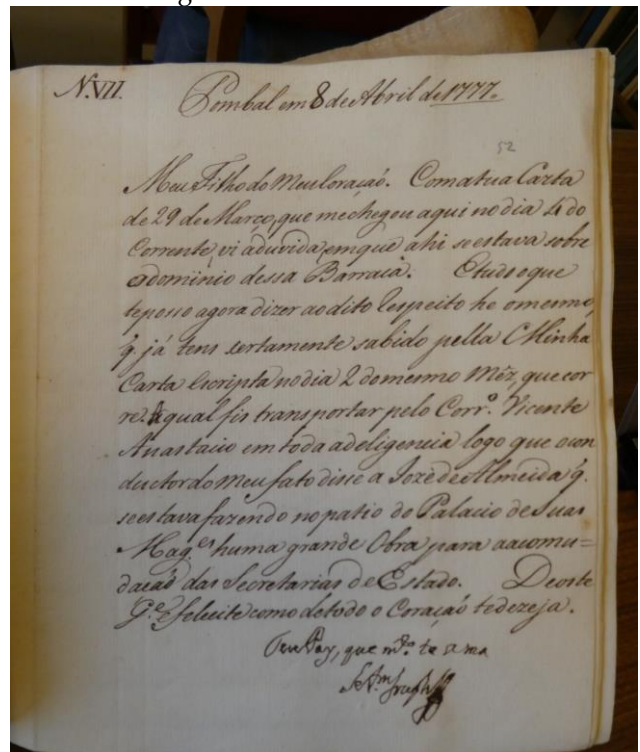 N.VII.
Pombal em 8 de Abril de 1777.
52
Meu Filho do Meu Coraçaõ. Com a tua Carta
de 29 de Março, que me chegou aqui no dia 4 do
Corrente, vi a duvida, em que ahi se estava sobre
o dominio dessa Barraca. E tudo o que
te posso agora dizer ao dito respeito he o mesmo,
q. já tens sertamente sabido pella Minha
Carta Escripta no dia 2 do mesmo Mêz, que cor
re. A qual fis transportar pelo Corr.º Vicente
Anastacio em toda a deligencia logo que o con
ductor do meu fato disse a Jozé de Almeida q.
se estava fazendo no patio do Palacio de Suas
Mag.es huma grande Obra para aacomu=
dacaõ das Secretarias de Estado. Deos te
G.e E felecite como de todo o Coraçaõ te dezeja.
Teu Pay, que m.to te ama